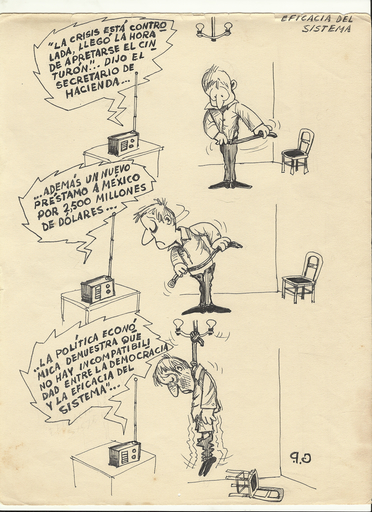 EFICACIA DEL
SISTEMA
"LA CRISIS ESTÁ CONTRO
LADA, LLEGÓ LA HORA
DE APRETARSE EL CIN
TURÓN"... DIJO EL
SECRETARIO DE
HACIENDA...
...ADEMÁS UN NUEVO
PRÉSTAMO A MÉXICO
POR 2,500 MILLONES
DE DÓLARES...
..LA POLÍTICA ECONÓ
MICA DEMUESTRA QUE
NO HAY INCOMPATIBILI
DAD ENTRE LA DEMOCRACIA
Y LA EFICACIA DEL
SISTEMA"...